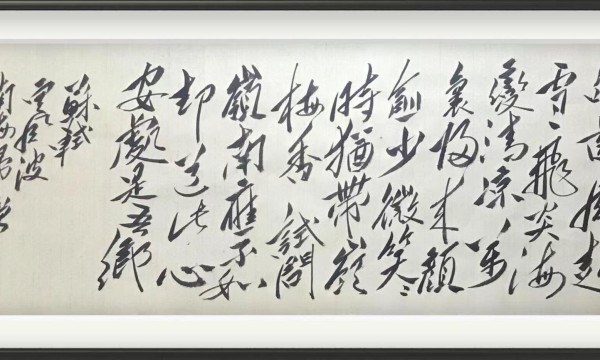 起
雪飛炎海
變清涼萬
裏歸來顏
愈少微笑々
時猶帶嶺
梅香試問
嶺南應不好
却道此心
安處是吾鄉
蘇軾
定風波
南海歸贈